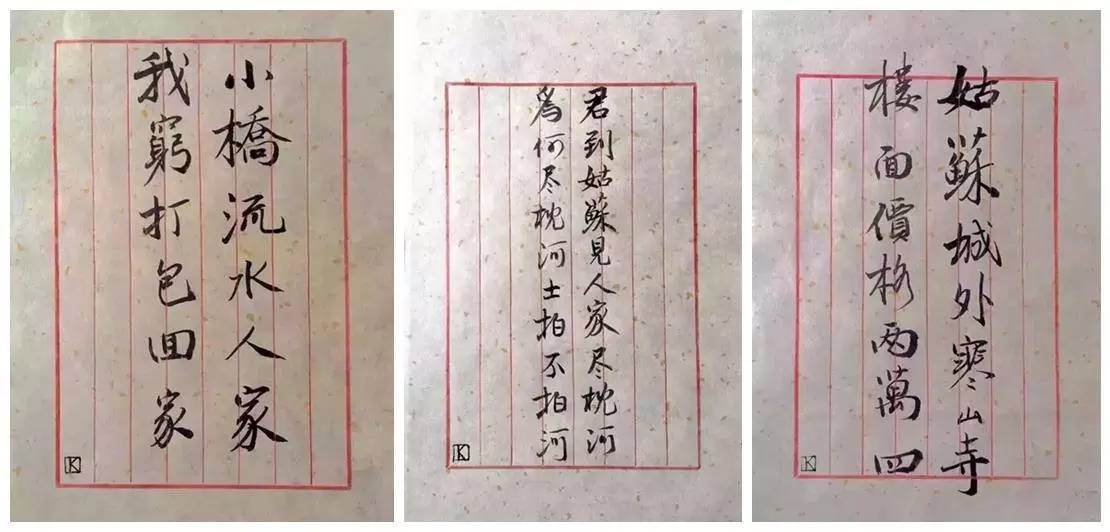 小橋流水人家
我窮打包回家
K
君到姑蘇見人家尽枕河
爲何尽枕河土拍不拍河
K
姑蘇城外寒山寺
樓面價格两萬四
K